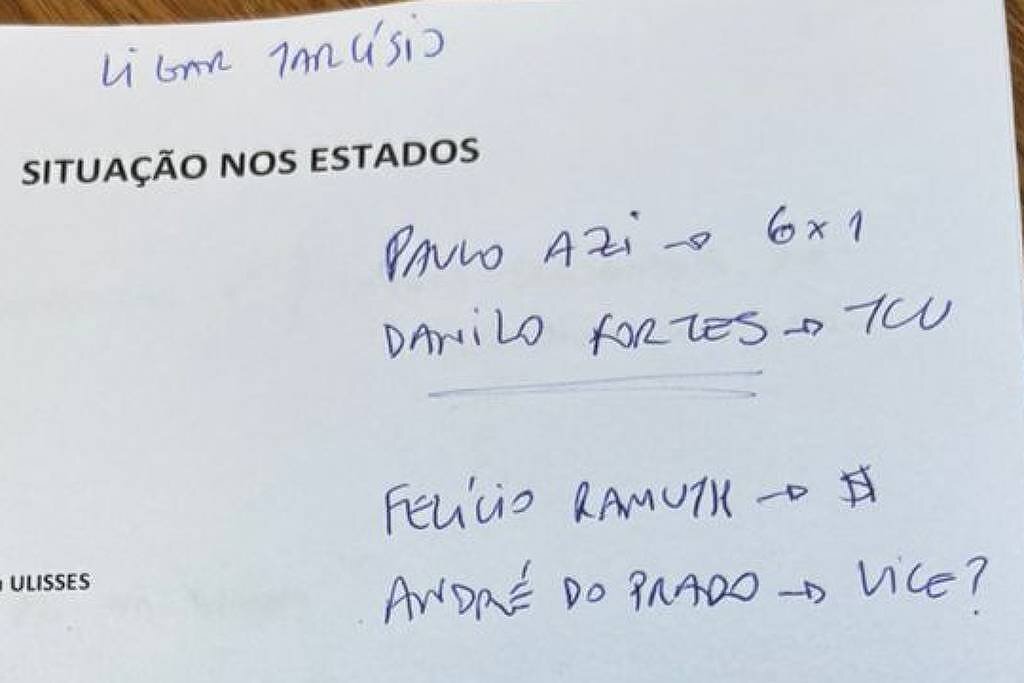 LIGAR TARCÍSIO
SITUAÇÃO NOS ESTADOS
PAULO AZI → 6x1
DANILO FORTES → TCU
FELÍCIO RAMUTH → $
ANDRÉ DO PRADO → VICE?
ULISSES